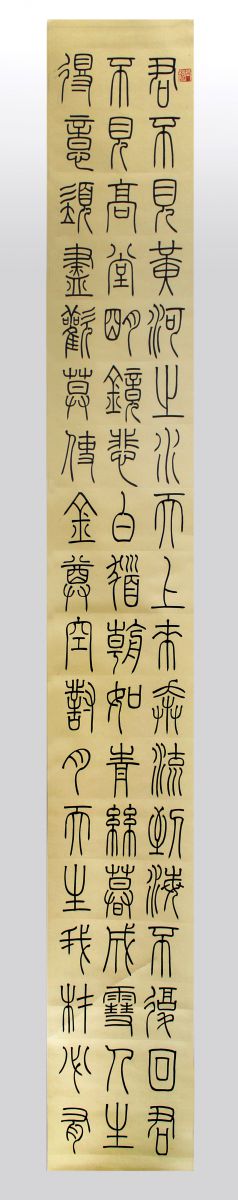 君不見黃河之水天上來奔流到海不復回君
不見高堂明鏡悲白髮朝如青絲暮成雪人生
得意須盡歡莫使金尊空對月天生我材必有